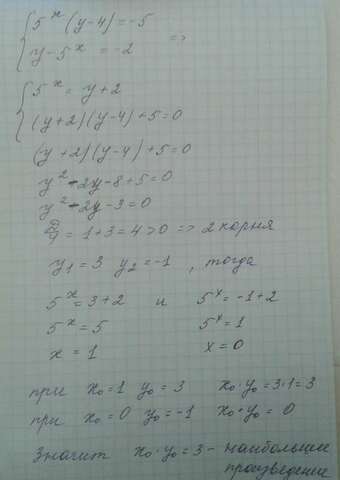 { 5ˣ(y-4)=-5
y-5ˣ=-2 =>
{ 5ˣ = y+2
(y+2)(y-4)+5=0
(y+2)(y-4)+5=0
y²-2y-8+5=0
y²-2y-3=0
D/4=1+3=4>0 => 2 корня
y₁=3 y₂=-1, тогда
5ˣ=3+2 и 5ˣ=-1+2
5ˣ=5 5ˣ=1
x=1 x=0
при x₀=1 y₀=3 x₀·y₀=3·1=3
при x₀=0 y₀=-1 x₀·y₀=0
Значит x₀·y₀=3- наибольшее
произведение